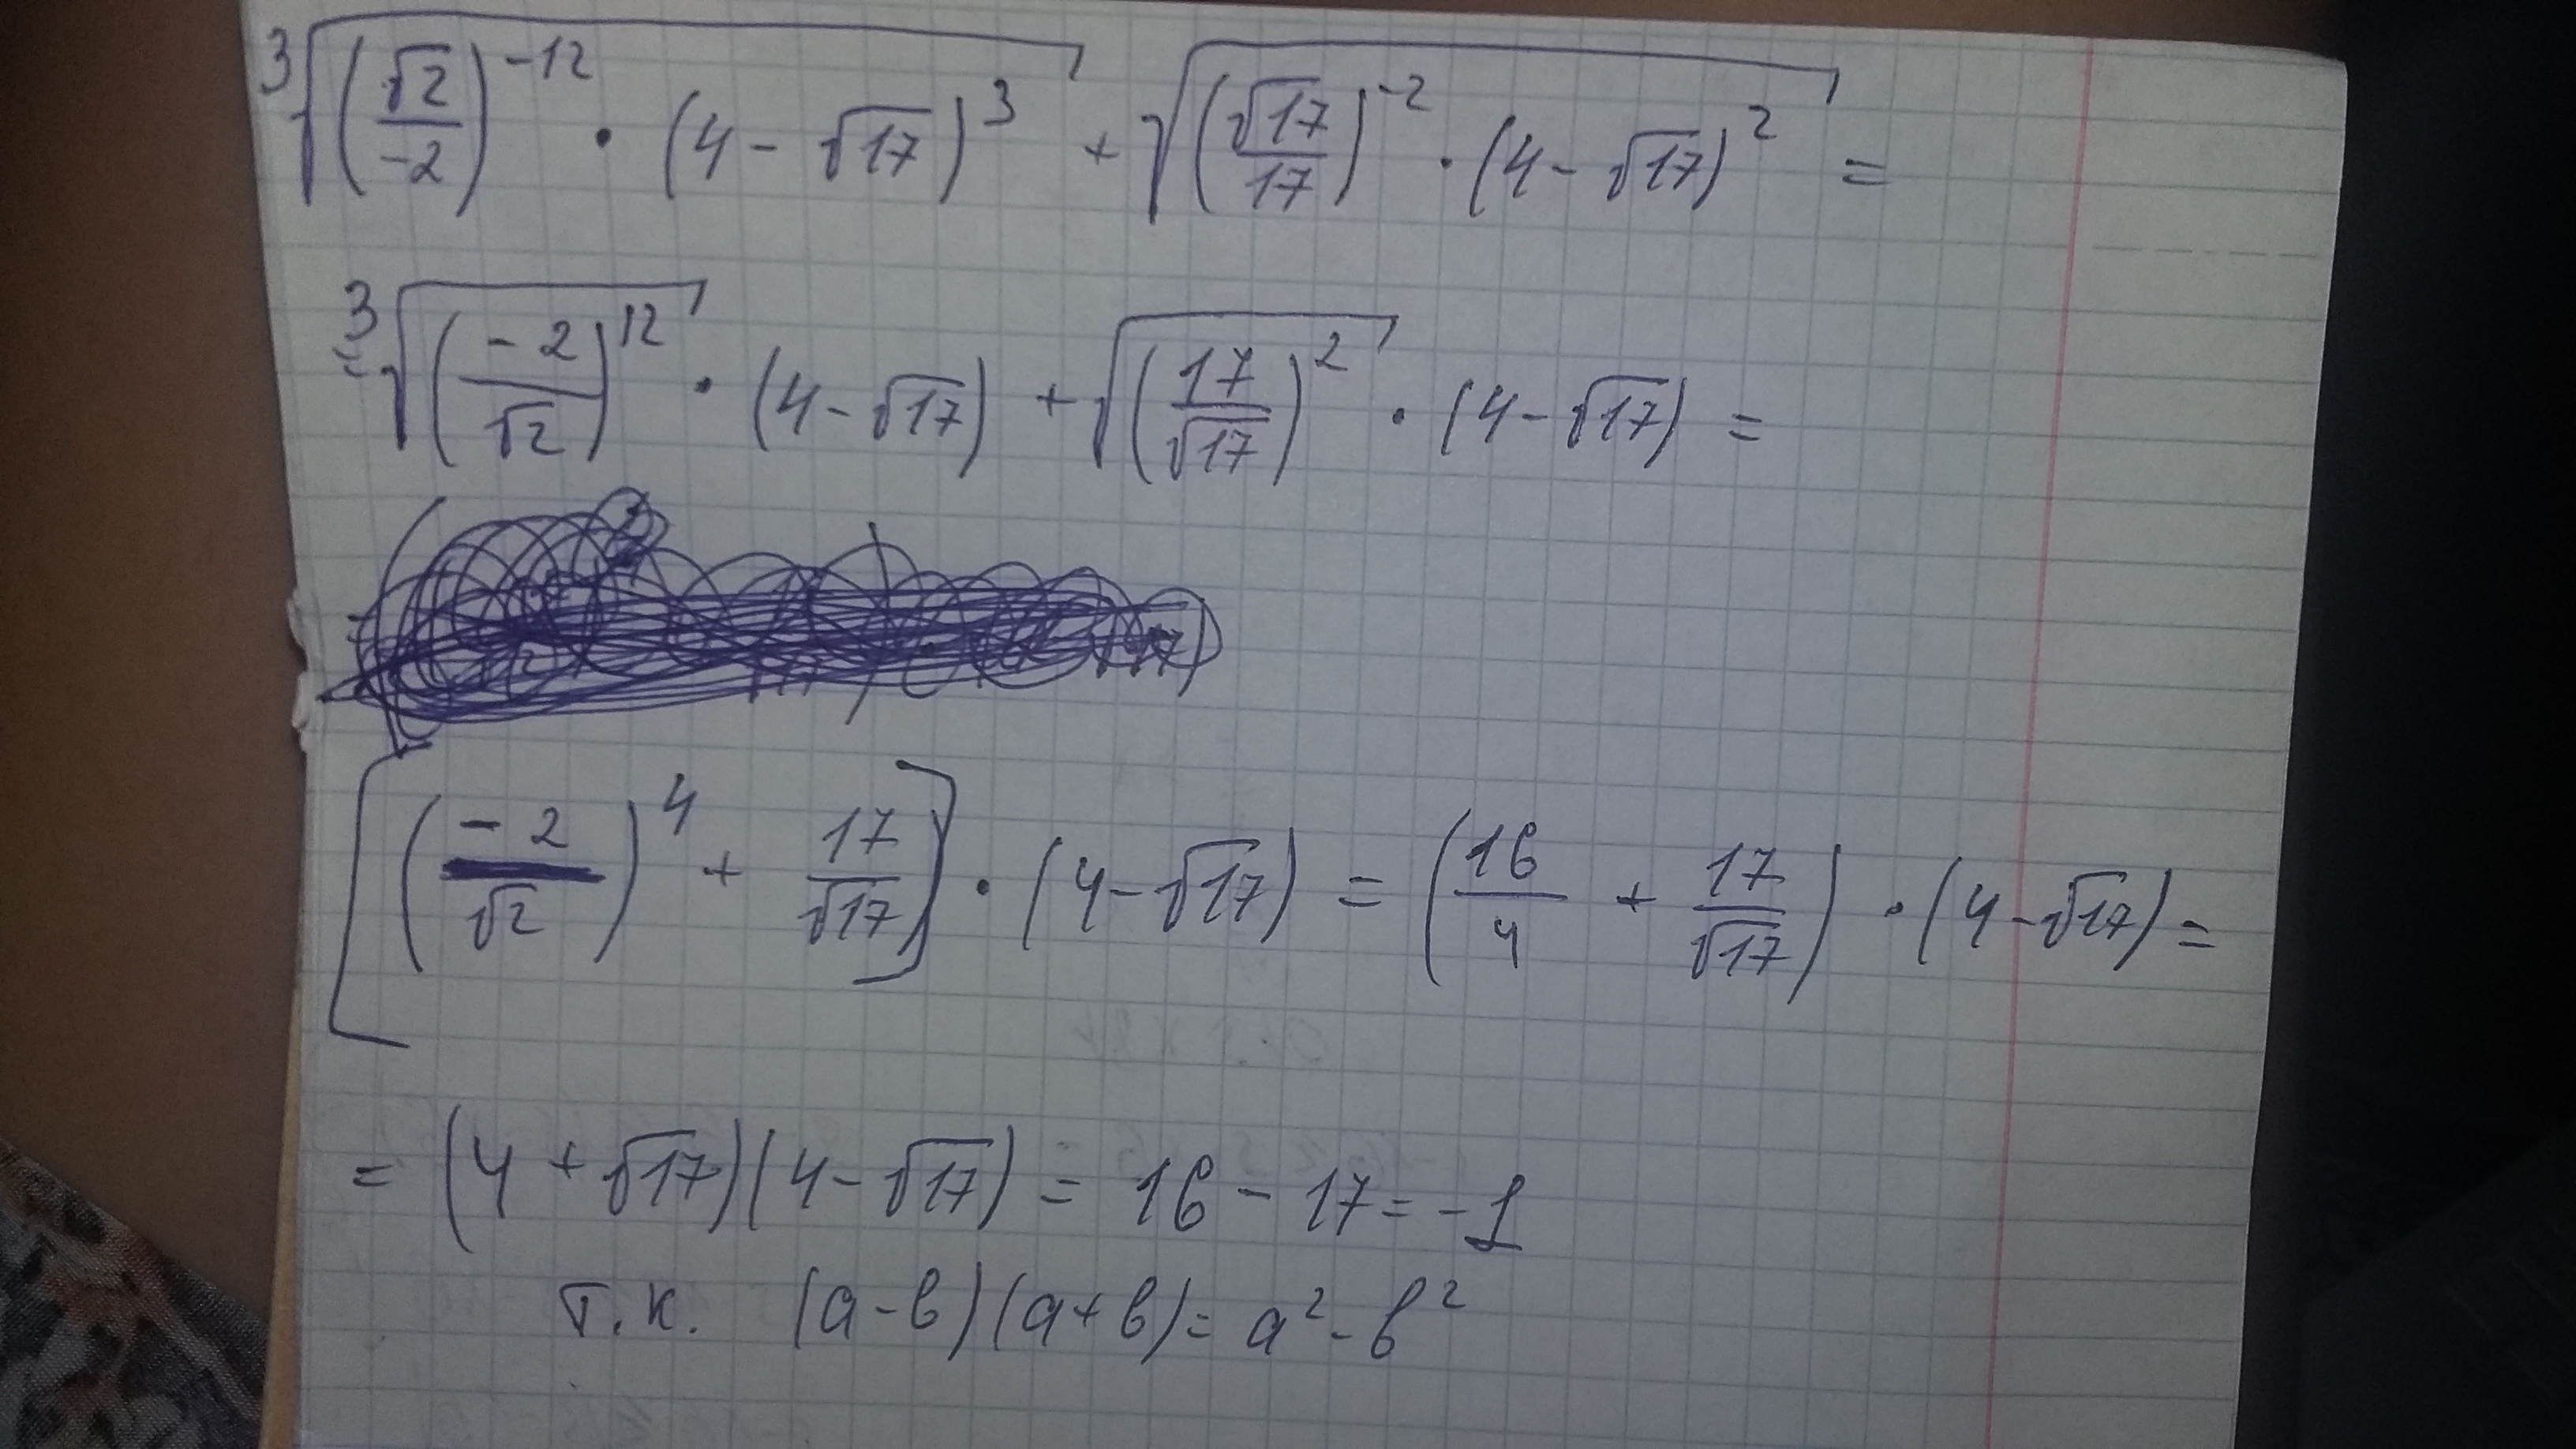 ∛((√2/-2)^-12 · (4 - √17)^3) + √((√17/17)^-2 · (4 - √17)^2) =
= ∛((-2/√2)^12) · (4 - √17) + √((17/√17)^2) · (4 - √17) =
[(-2/√2)^4 + 17/√17] · (4 - √17) = (16/4 + 17/√17) · (4 - √17) =
= (4 + √17)(4 - √17) = 16 - 17 = -1
т.к. (a - b)(a + b) = a² - b²